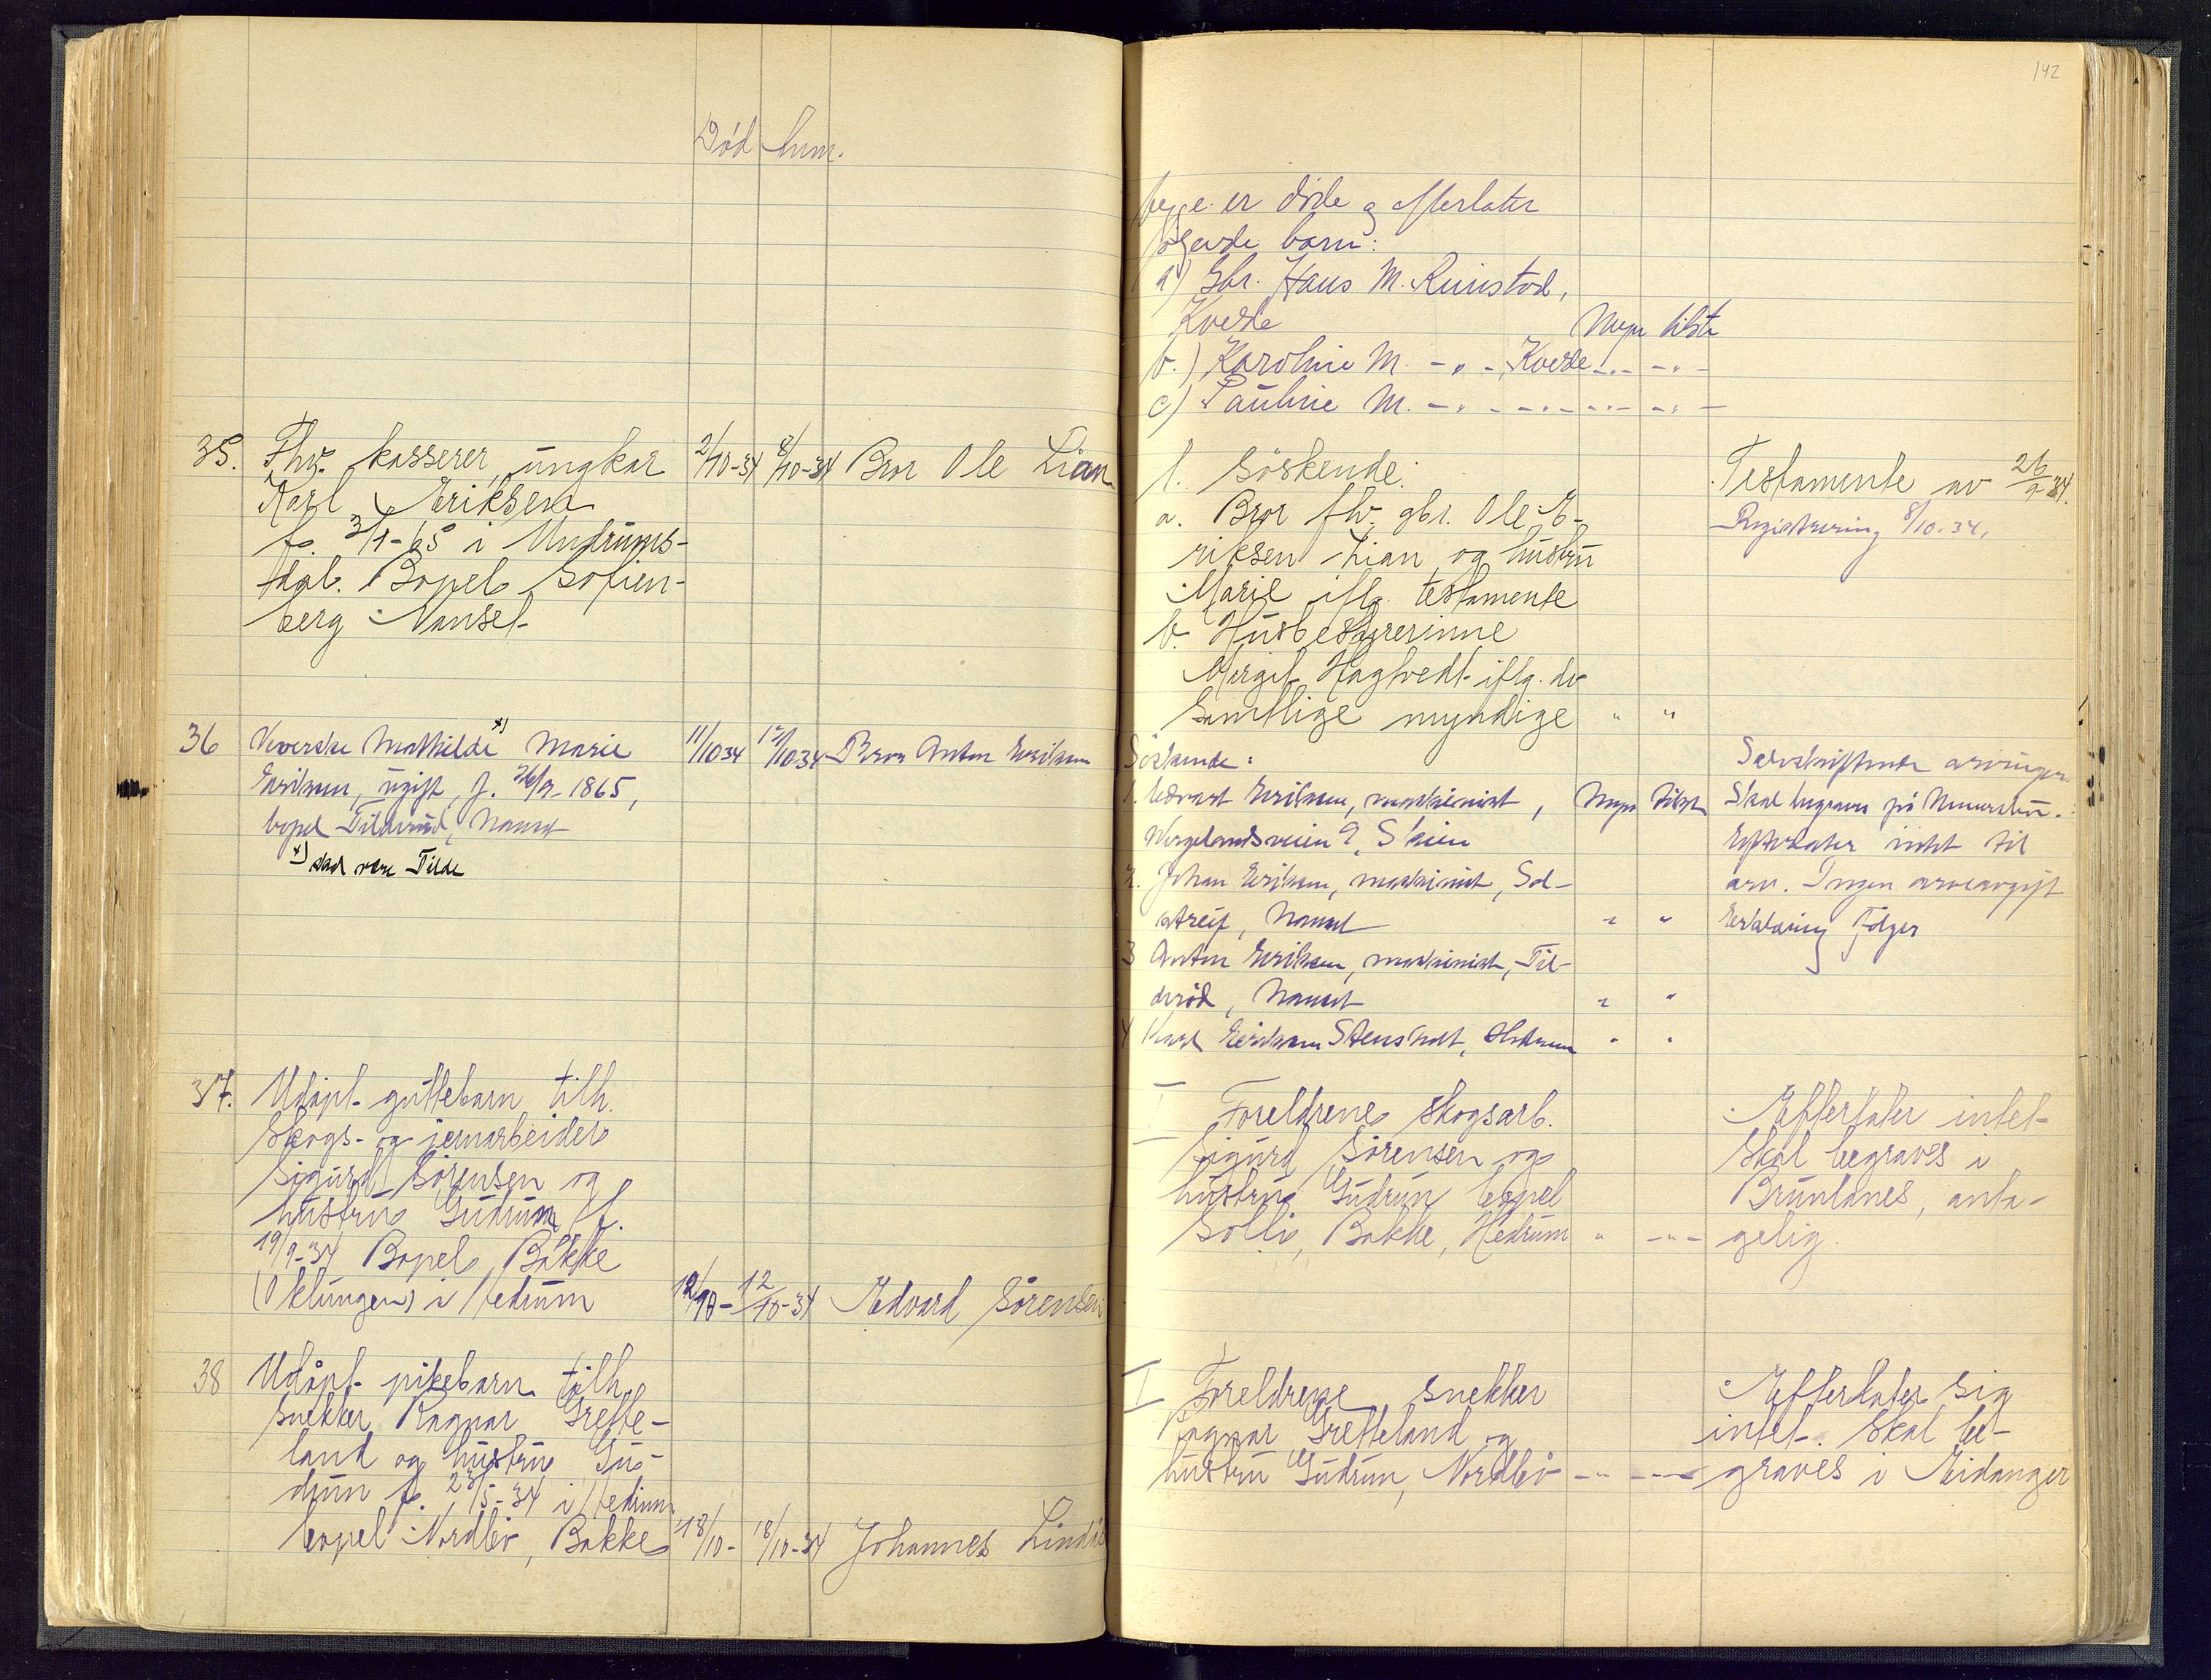 142
Död
begge er döde og efterlater
følgende barn:
a) Gbr. Hans M. Rimstad,
Kvelde
b.) Karoline M. -„- Kvelde -„- -„-
c) Pauline M. -„- -„- -„- -„-
35. Fhv. kasserer, ungkar 2/10-34 8/10-34 Bror Ole Lian
Karl Eriksen
f. 3/1-65 i Undrums-
dal. Bopel Sofien-
berg Nanset
1. Söskende:
a. Bror fhv. gbr. Ole E-
riksen Lian og hustru
Marie iflg. testamente
b. Husbestyrerinne
Margit Hagtvedt iflg. do
Samtlige myndige „ „
Testamente av 26/9-34.
Registrering 8/10-34.
36 Veverske Mathilde x) Marie 11/10 34 12/10 34 Bror Anton Eriksen
Eriksen, ugift, f. 26/9-1865,
bopel Tilderöd, Nanset
x) skal være Tilde
Söskende:
1. Edvart Eriksen, maskinist, Myn. Tilst.
Vergelandsveien 9, Skien
2. Johan Eriksen, maskinist, Sol-
streif, Nanset „ „
3 Anton Eriksen, maskinist, Til-
deröd, Nanset „ „
4 Karl Eriksen Stensholt, „ „
Selvskiftende arvinger
Skal begraves på
Efterlater intet til
arv. Ingen arveavgift
Erklæring følger
37. Udöpt guttebarn tilh.
Skogs- og jernarbeider
Sigurd Sörensen og
hustru Gudrun f.
19/9-34 Bopel Bakke
(Oklungen) i Hedrum 12/10- 12/10-34 Edvard Sörensen
I Foreldrene skogsarb.
Sigurd Sörensen og
hustru Gudrun bopel
Solli, Bakke, Hedrum „ -„-
Efterlater intet
Skal begraves i
Brunlanes, anta-
gelig.
38 Udöpt pikebarn tilh.
Snekker Ragnar Grette-
land og hustru Gu-
drun f. 23/5-34 i Hedrum
bopel Nordbö, Bakke 18/10- 18/10-34 Johannes
I Foreldrene snekker
Ragnar Gretteland og
hustru Gudrun, Nordbö -„- -„-
Efterlater sig
intet. Skal be-
graves i Eidanger